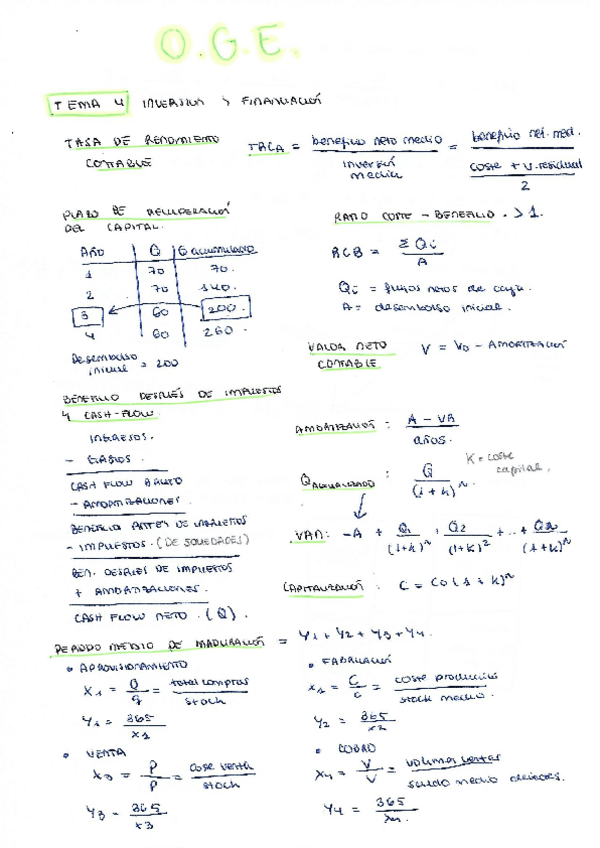 O.G.E.
TEMA 4 INVERSION Y FINANCIACIÓN
TASA DE RENDIMIENTO CONTABLE
TRCA = beneficio neto medio / inversión media = beneficio net. med. / (coste + v. residual / 2)
PLAZO DE RECUPERACIÓN DEL CAPITAL.
AÑO | Q | Q ACUMULADO
1 | 70 | 70.
2 | 70 | 140.
3 | 60 | 200.
4 | 60 | 260.
Desembolso inicial = 200
RATIO COSTE - BENEFICIO. > 1.
RCB = Σ Qi / A
Qi = flujos netos de caja.
A = desembolso inicial.
VALOR NETO CONTABLE
V = V0 - AMORTIZACIÓN
BENEFICIO DESPUÉS DE IMPUESTOS Y CASH-FLOW.
INGRESOS.
- GASTOS
CASH FLOW BRUTO
- AMORTIZACIONES.
BENEFICIO ANTES DE IMPUESTOS
- IMPUESTOS. (DE SOCIEDADES)
BEN. DESPUES DE IMPUESTOS
+ AMORTIZACIONES.
CASH FLOW NETO. (Q).
AMORTIZACIÓN : A - VR / años.
Q ACTUALIZADO : Q / (1 + k)^n.
K = coste capital.
VAN: -A + Q1 / (1+k)^n + Q2 / (1+k)^2 + .. + Qn / (1+k)^n
CAPITALIZACIÓN : C = C0 (1 + k)^n
PERIODO MEDIO DE MADURACIÓN = Y1 + Y2 + Y3 + Y4.
• APROVISIONAMIENTO
X1 = Q / q = total compras / stock
Y1 = 365 / X1
• FABRICACIÓN
X2 = C / c = coste producción / stock medio.
Y2 = 365 / X2
• VENTA
X3 = P / P = coste venta / stock
Y3 = 365 / X3
• COBRO
X4 = V / V = volumen ventas / saldo medio clientes.
Y4 = 365 / X4.